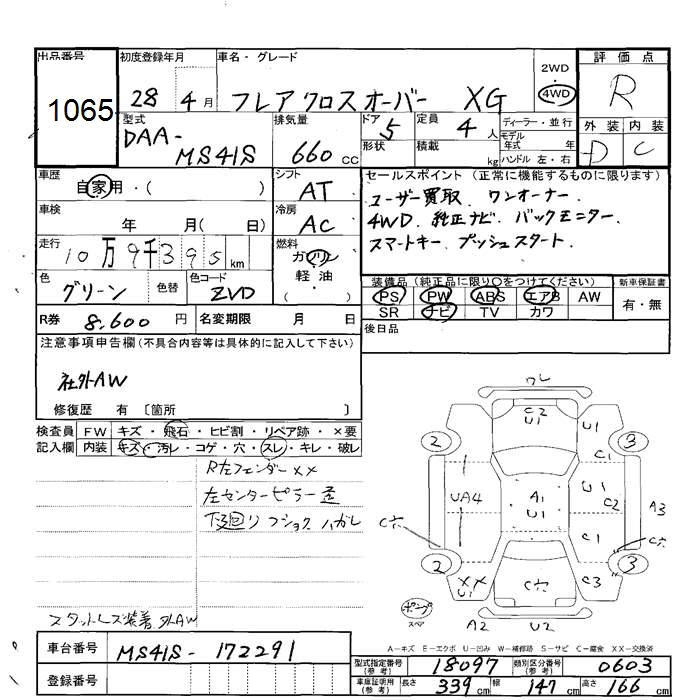 出品番号
1065
初度登録年月
28 4 月
車名・グレード
フレアクロスオーバー XG
2WD
4WD
評価点
R
外装 内装
D C
型式
DAA-
MS41S
排気量
660 CC
ドア 5
形状
定員 4 人
積載 kg
ディーラー・並行
モデル
年式 年
ハンドル 左・右
車歴
自家用・( )
シフト
AT
セールスポイント (正常に機能するものに限ります)
ユーザー買取. ワンオーナー.
4WD. 純正ナビ. バックモニター.
スマートキー. プッシュスタート.
車検
年 月( 日)
冷房
AC
走行
10万9千395 km
燃料
ガソリン
軽油
( )
色
グリーン
色替
色コード
ZVD
装備品(純正品に限り○をつけてください)
新車保証書
PS PW ABS エアB AW
有・無
SR ナビ TV カワ
R券 8,600 円
名変期限 月 日
後日品
注意事項申告欄(不具合内容等は具体的に記入して下さい)
社外AW
修復歴 有 〔箇所 〕
検査員 FW キズ・飛石・ヒビ割・リペア跡・×要
記入欄 内装 キズ・汚レ・コゲ・穴・スレ・キレ・破レ
R左フェンダーXX
左センターピラー
下廻り フショク ハガレ
スタットレス装着 外AW
ワレ
C2
U1
U1
2
3
C1
UA4
A1
U1
U1
C2
A3
C1
2
3
XX
U1
C3
ポンプ
スペア
A2 U2
A-キズ E-エクボ U-凹み W-補修跡 S-サビ C-腐食 XX-交換済
車台番号
MS41S - 172291
登録番号
型式指定番号
(参考)
18097
類別区分番号
(参考)
0603
車庫証明用
(参考)
長さ 339 cm 幅 147 cm 高さ 166 cm